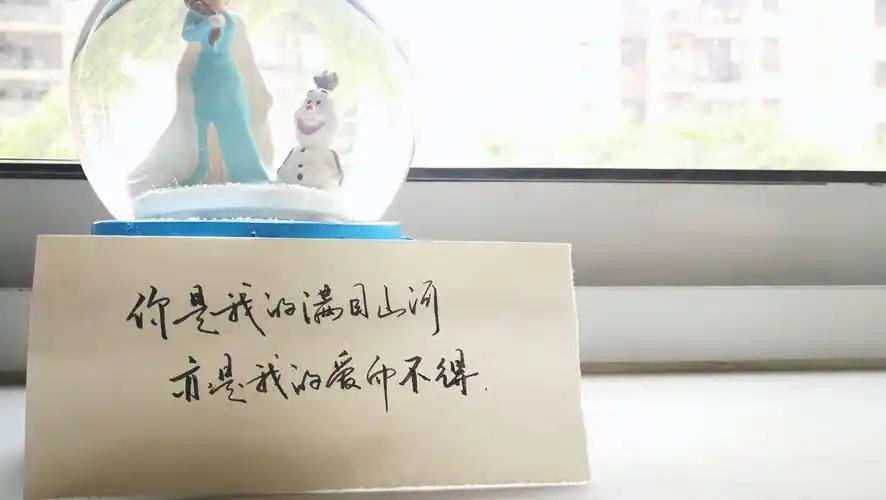 你是我的满目山河
亦是我的爱而不得.